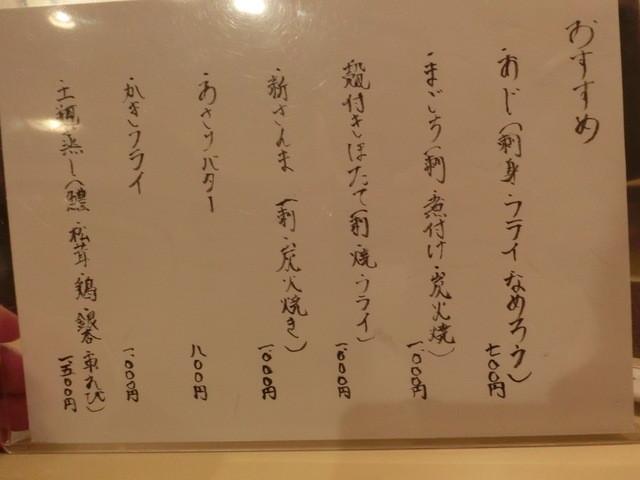 おすすめ
・あじ(刺身・フライ・なめろう) 七〇〇円
・まごち(刺・煮付け・炭火焼) 一、〇〇〇円
・殻付きほたて(刺・焼・フライ) 一、〇〇〇円
・新さんま(刺・炭火焼き) 一、〇〇〇円
・あさりバター 八〇〇円
・かきフライ 一、〇〇〇円
・土瓶蒸し(鱧・松茸・鶏・銀杏・車えび) 一、五〇〇円